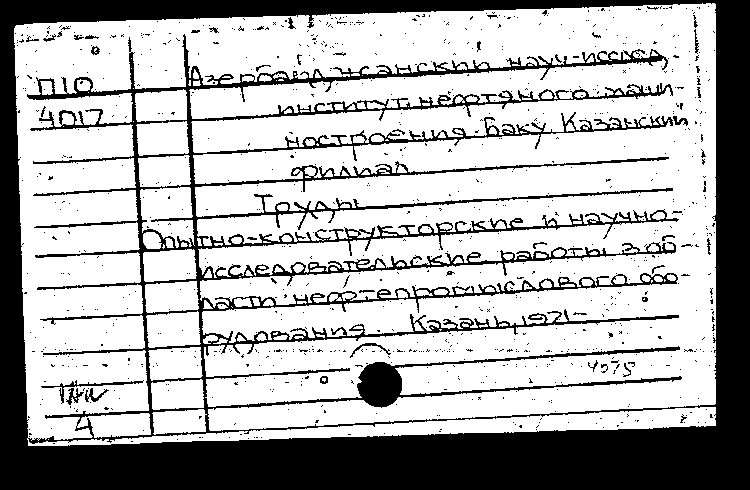 П10 Азербайджанский науч-исслед.
4017 институт нефтяного маши-
ностроения. Баку. Казанский
филиал
Труды
Опытно-конструкторские и научно-
исследовательские работы в об-
ласти нефтепромыслового обо-
рудования. Казань, 1971-
4